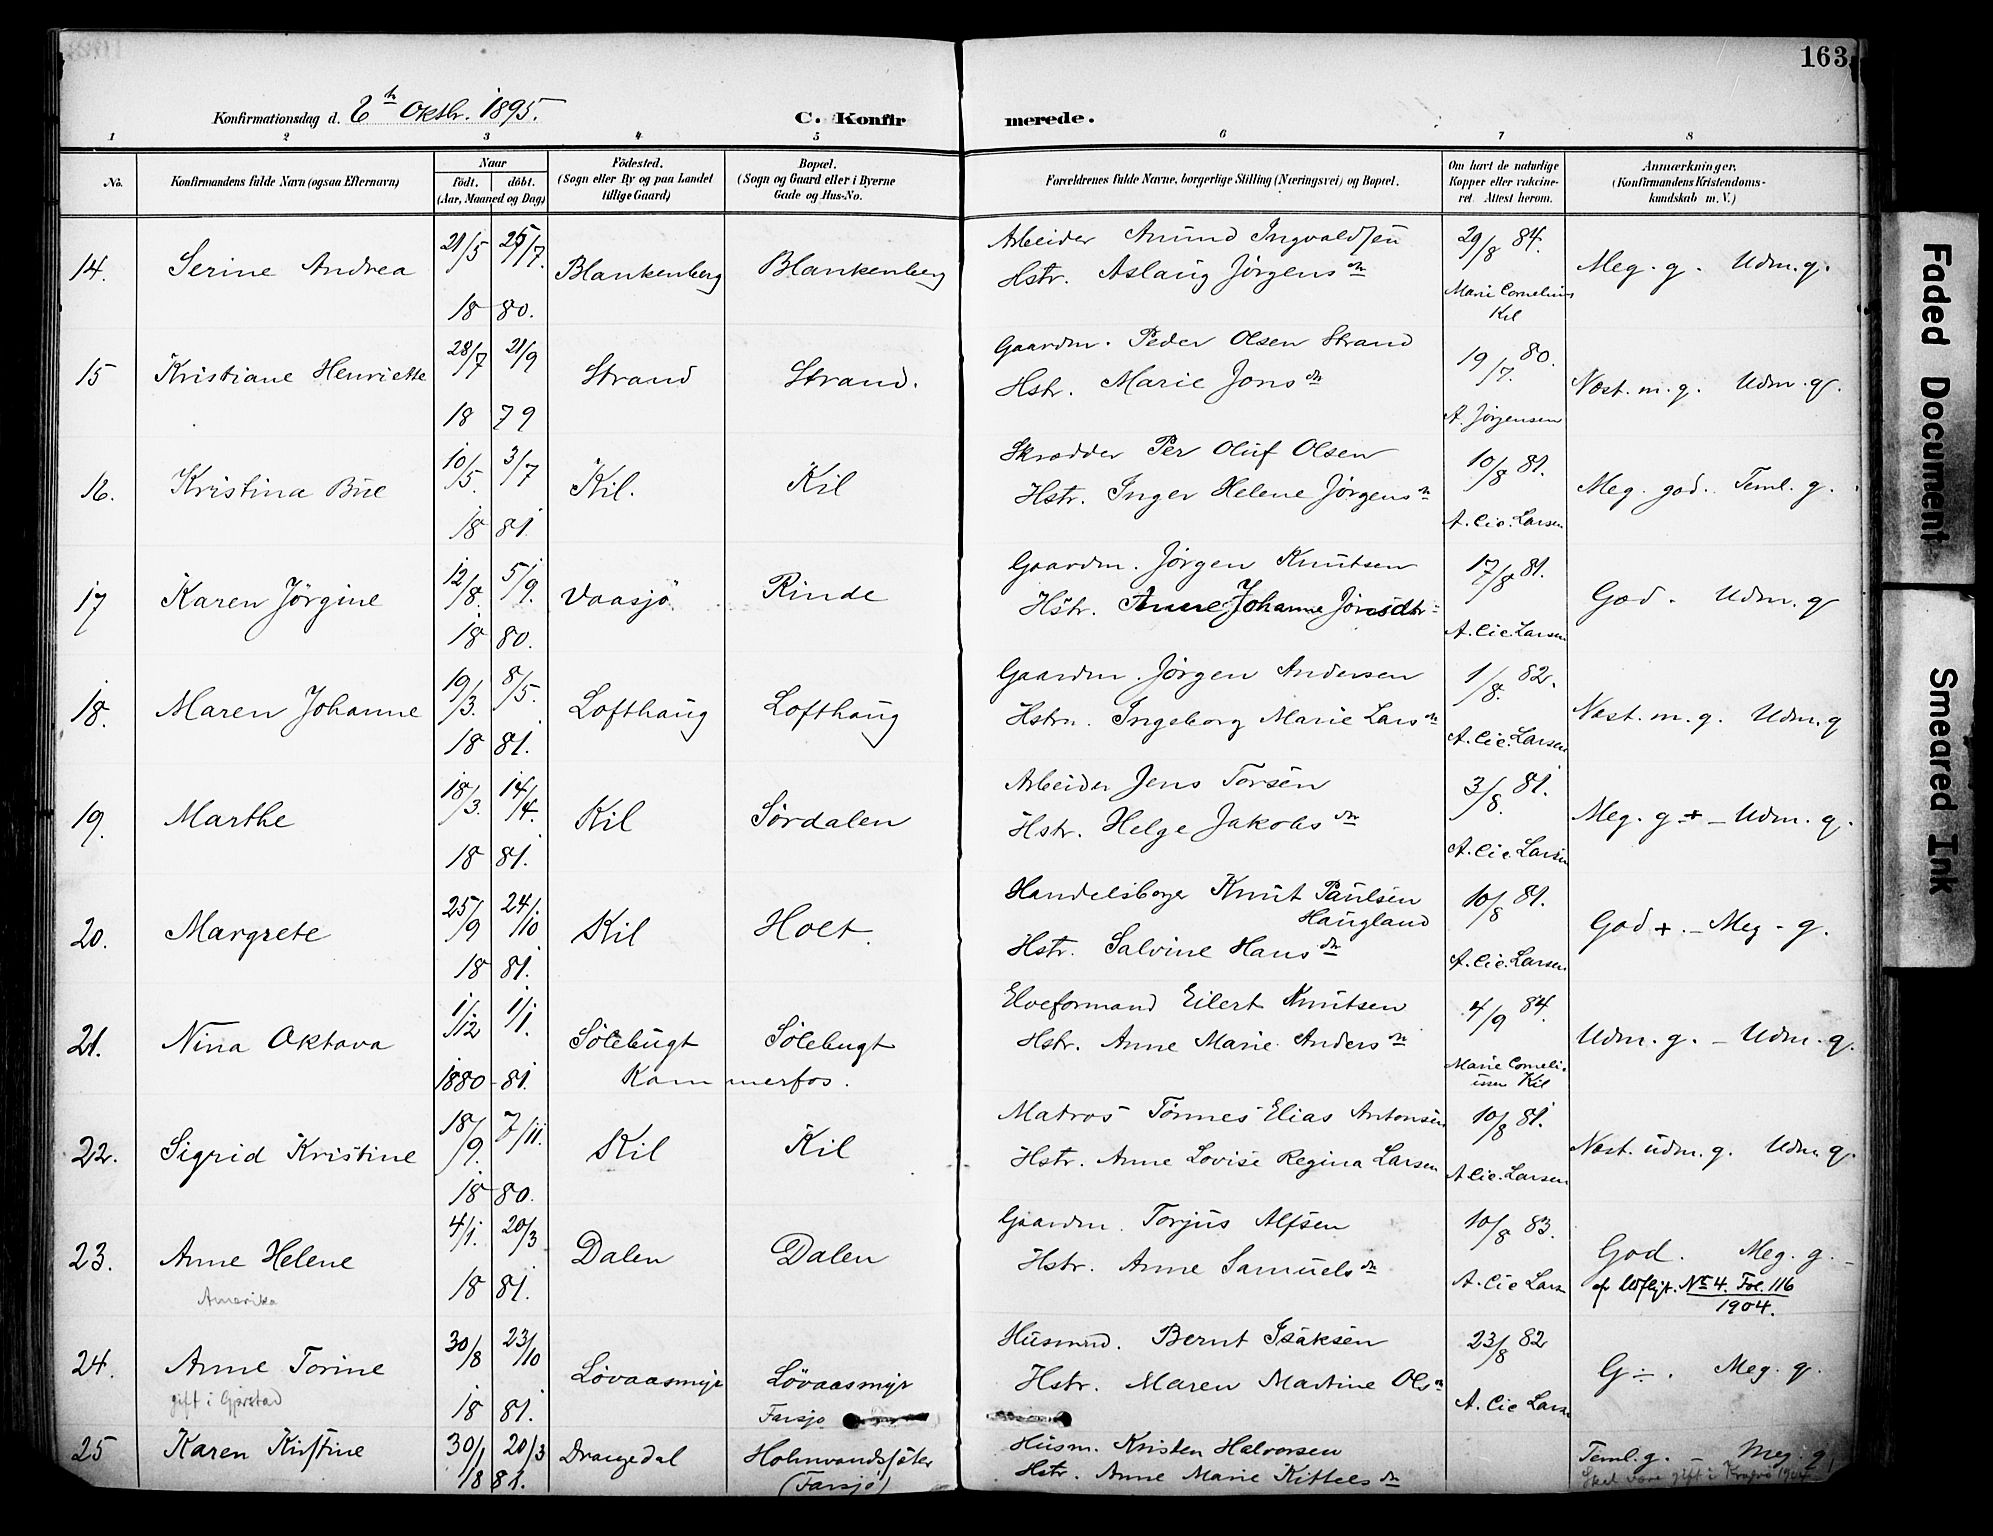 163
Konfirmationsdag d. 6te Oktbr. 1895. C. Konfirmerede.
1 2 3 4 5 6 7 8
No. Konfirmandens fulde Navn (ogsaa Efternavn) Naar födt. döbt. (Aar, Maaned og Dag) Födested. (Sogn eller By og paa Landet tillige Gaard) Bopæl. (Sogn og Gaard eller i Byerne Gade og Hus-No. Forældrenes fulde Navne, borgerlige Stilling (Næringsvei) og Bopæl. Om havt de naturlige Kopper eller vakcineret. Attest herom. Anmærkninger. (Konfirmandens Kristendomskundskab m. V.)
Arbeider Anund Ingvaldsen
14. Serine Andrea 21/5 25/7. 18 80. Blankenberg Blankenberg Hstr. Aslaug Jørgensdn 29/8 84. Marie Cornelius Kil Meg. g. Udm. g.
Gaardm. Peder Olsen Strand
15 Kristiane Henriette 28/7 21/9 18 79 Strand Strand. Hstr. Marie Jonsdn 19/7. 80. A. Jörgensen Næst. m. g. Udm. g.
Skrædder Per Oluf Olsen
16. Kristina Bue 10/5. 3/7 18 81. Kil. Kil Hstr. Inger Helene Jørgensdn 10/8 81. A. Cic. Larsen Meg. god. Teml. g.
Gaardm. Jørgen Knutsen
17 Karen Jörgine 12/8. 5/9. 18 80. Vaasjö Rinde Hstr. Anne Johanne Jönsdtr 17/8 81. A. Cic. Larsen God. Udm. g
Gaardm. Jørgen Andersen
18. Maren Johanne 19/3. 8/5. 18 81. Lofthaug Lofthaug Hstr. Ingeborg Marie Larsdn 1/8. 82. A. Cic. Larsen Næst. m. g. Udm. g
Arbeider Jens Torsen
19. Marthe 18/3. 14/4. 18 81. Kil Sördalen Hstr. Helge Jakobsdn 3/8. 81. A. Cic. Larsen Meg. g + - Udm. g.
Handelsborger Knut Paulsen Haugland
20. Margrete 25/9 24/10 18 81. Kil Holt. Hstr. Salvine Hansdn 10/8 81. A. Cic. Larsen God +. - Meg - g.
Elveformand Eilert Knutsen
21. Nina Oktava 1/12 1/1. 1880 - 81. Sölebugt Sölebugt Kammerfos. Hstr. Anne Marie Andersdn 4/9 84. Marie Cornelius Kil Udm. g. - Udm. g.
Matros Tönnes Elias Antonsen
22. Sigrid Kristine 18/9. 7/11. 18 80. Kil Kil Hstr. Anne Lovise Regina Larsen 10/8 81. A Cic. Larsen Næst. udm. g. Udm g.
Gaardm. Torjus Alfsen
23. Anne Helene 4/1. 20/3 18 81. Dalen Dalen Hstr. Anne Samuelsdn 10/8 83. A. Cic Larsen God. Meg. g. -
Amerika
cf Udflyt. No 4. Fol. 116
1904.
Husmnd. Bernt Isaksen
24. Anne Torine 30/8 23/10 18 81. Lövaasmyr Lövaasmyr Farsjø Hstr. Maren Martine Olsdn 23/8 82 A. Cic Larsen G ÷. Meg. g.
gift i Gjerstad
Husm. Kristen Halvorsen
25 Karen Kirstine 30/1 20/3 1881. Drangedal Holmvandssäter (Farsjø) Hstr. Anne Marie Kittelsdn Teml. g. - Meg. g.
Skal være gift i Kragerø 1904
Faded Document
Smeared Ink